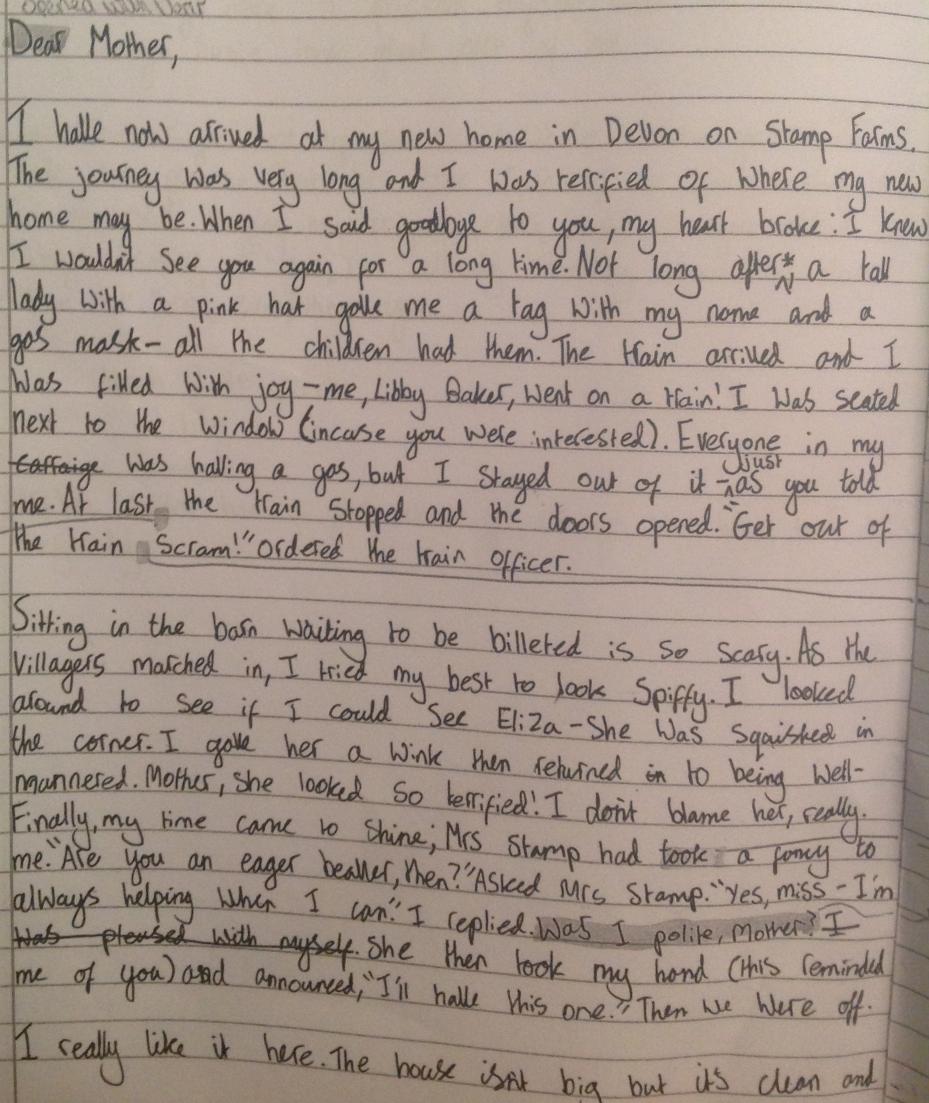 opened with Dear
Dear Mother,
I have now arrived at my new home in Devon on Stamp Farms.
The journey was very long and I was terrified of where my new
home may be. When I said goodbye to you, my heart broke: I knew
I wouldn't see you again for a long time. Not long after* a tall
lady with a pink hat gave me a tag with my name and a
gas mask - all the children had them. The train arrived and I
was filled with joy - me, Libby Baker, went on a train! I was seated
next to the window (incase you were interested). Everyone in my
carraige was having a gas, but I stayed out of it - just as you told
me. At last the train stopped and the doors opened. "Get out of
the train scram!" ordered the train officer.
Sitting in the barn waiting to be billeted is so scary. As the
villagers marched in, I tried my best to look spiffy. I looked
around to see if I could see Eliza - she was sqaished in
the corner. I gave her a wink then returned in to being well-
mannered. Mother, she looked so terrified! I don't blame her, really.
Finally, my time came to shine; Mrs Stamp had took a fancy to
me. "Are you an eager beaver, then?" Asked Mrs Stamp. "Yes, miss - I'm
always helping when I can." I replied. Was I polite, Mother? I
was pleased with myself. She then took my hand (this reminded
me of you) and announced, "I'll have this one." Then we were off.
I really like it here. The house isn't big but it's clean and